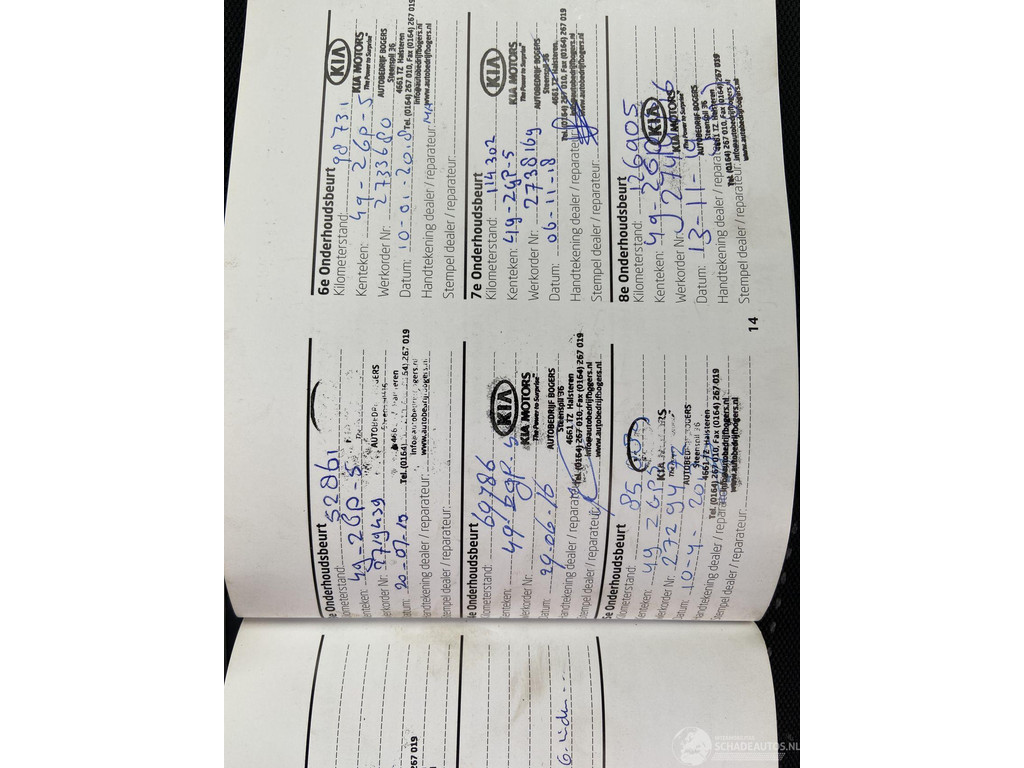 e Onderhoudsbeurt
ilometerstand: 52861
enteken: 49-2GP-5
erkorder Nr: 2719439
atum: 20-07-15
andtekening dealer / reparateur:
empel dealer / reparateur:
AUTOBEDR GERS
Tel. (0164) 54) 267 019
info@autobedr ogers.nl
www.autobedrijfbogers.nl
e Onderhoudsbeurt
lometerstand: 69786
enteken: 49-2GP-5
erkorder Nr:
atum: 29-06-16
andtekening dealer / reparateur:
empel dealer / reparateur:
KIA
KIA MOTORS
The Power to Surprise™
AUTOBEDRIJF BOGERS
Steenspil 36
4661 TZ Halsteren
Tel. (0164) 267 010, Fax (0164) 267 019
info@autobedrijfbogers.nl
www.autobedrijfbogers.nl
e Onderhoudsbeurt
ilometerstand:
enteken: 49-2GP5
erkorder Nr:
atum: 10-4-20
andtekening dealer / reparateur:
empel dealer / reparateur:
KIA
AUTOBEDRIJF BOGERS
Steenspil 36
4661 TZ Halsteren
Tel. (0164) 267 010, Fax (0164) 267 019
info@autobedrijfbogers.nl
www.autobedrijfbogers.nl
6e Onderhoudsbeurt
Kilometerstand: 98731
Kenteken: 49-2GP-5
Werkorder Nr: 2733680
Datum: 10-01-2018
Handtekening dealer / reparateur:
Stempel dealer / reparateur:
KIA
KIA MOTORS
The Power to Surprise™
AUTOBEDRIJF BOGERS
Steenspil 36
4661 TZ Halsteren
Tel. (0164) 267 010, Fax (0164) 267 019
info@autobedrijfbogers.nl
www.autobedrijfbogers.nl
7e Onderhoudsbeurt
Kilometerstand: 114302
Kenteken: 49-2GP-5
Werkorder Nr: 2738169
Datum: 06-11-18
Handtekening dealer / reparateur:
Stempel dealer / reparateur:
KIA
KIA MOTORS
The Power to Surprise™
AUTOBEDRIJF BOGERS
Steenspil 36
4661 TZ Halsteren
Tel. (0164) 267 010, Fax (0164) 267 019
info@autobedrijfbogers.nl
www.autobedrijfbogers.nl
8e Onderhoudsbeurt
Kilometerstand: 126905
Kenteken: 49-2GP
Werkorder Nr:
Datum: 13-11-19
Handtekening dealer / reparateur:
Stempel dealer / reparateur:
KIA
KIA MOTORS
AUTOBEDRIJF BOGERS
Steenspil 36
4661 TZ Halsteren
Tel. (0164) 267 010, Fax (0164) 267 019
info@autobedrijfbogers.nl
www.autobedrijfbogers.nl
14
267 019
SCHADEAUTOS.NL